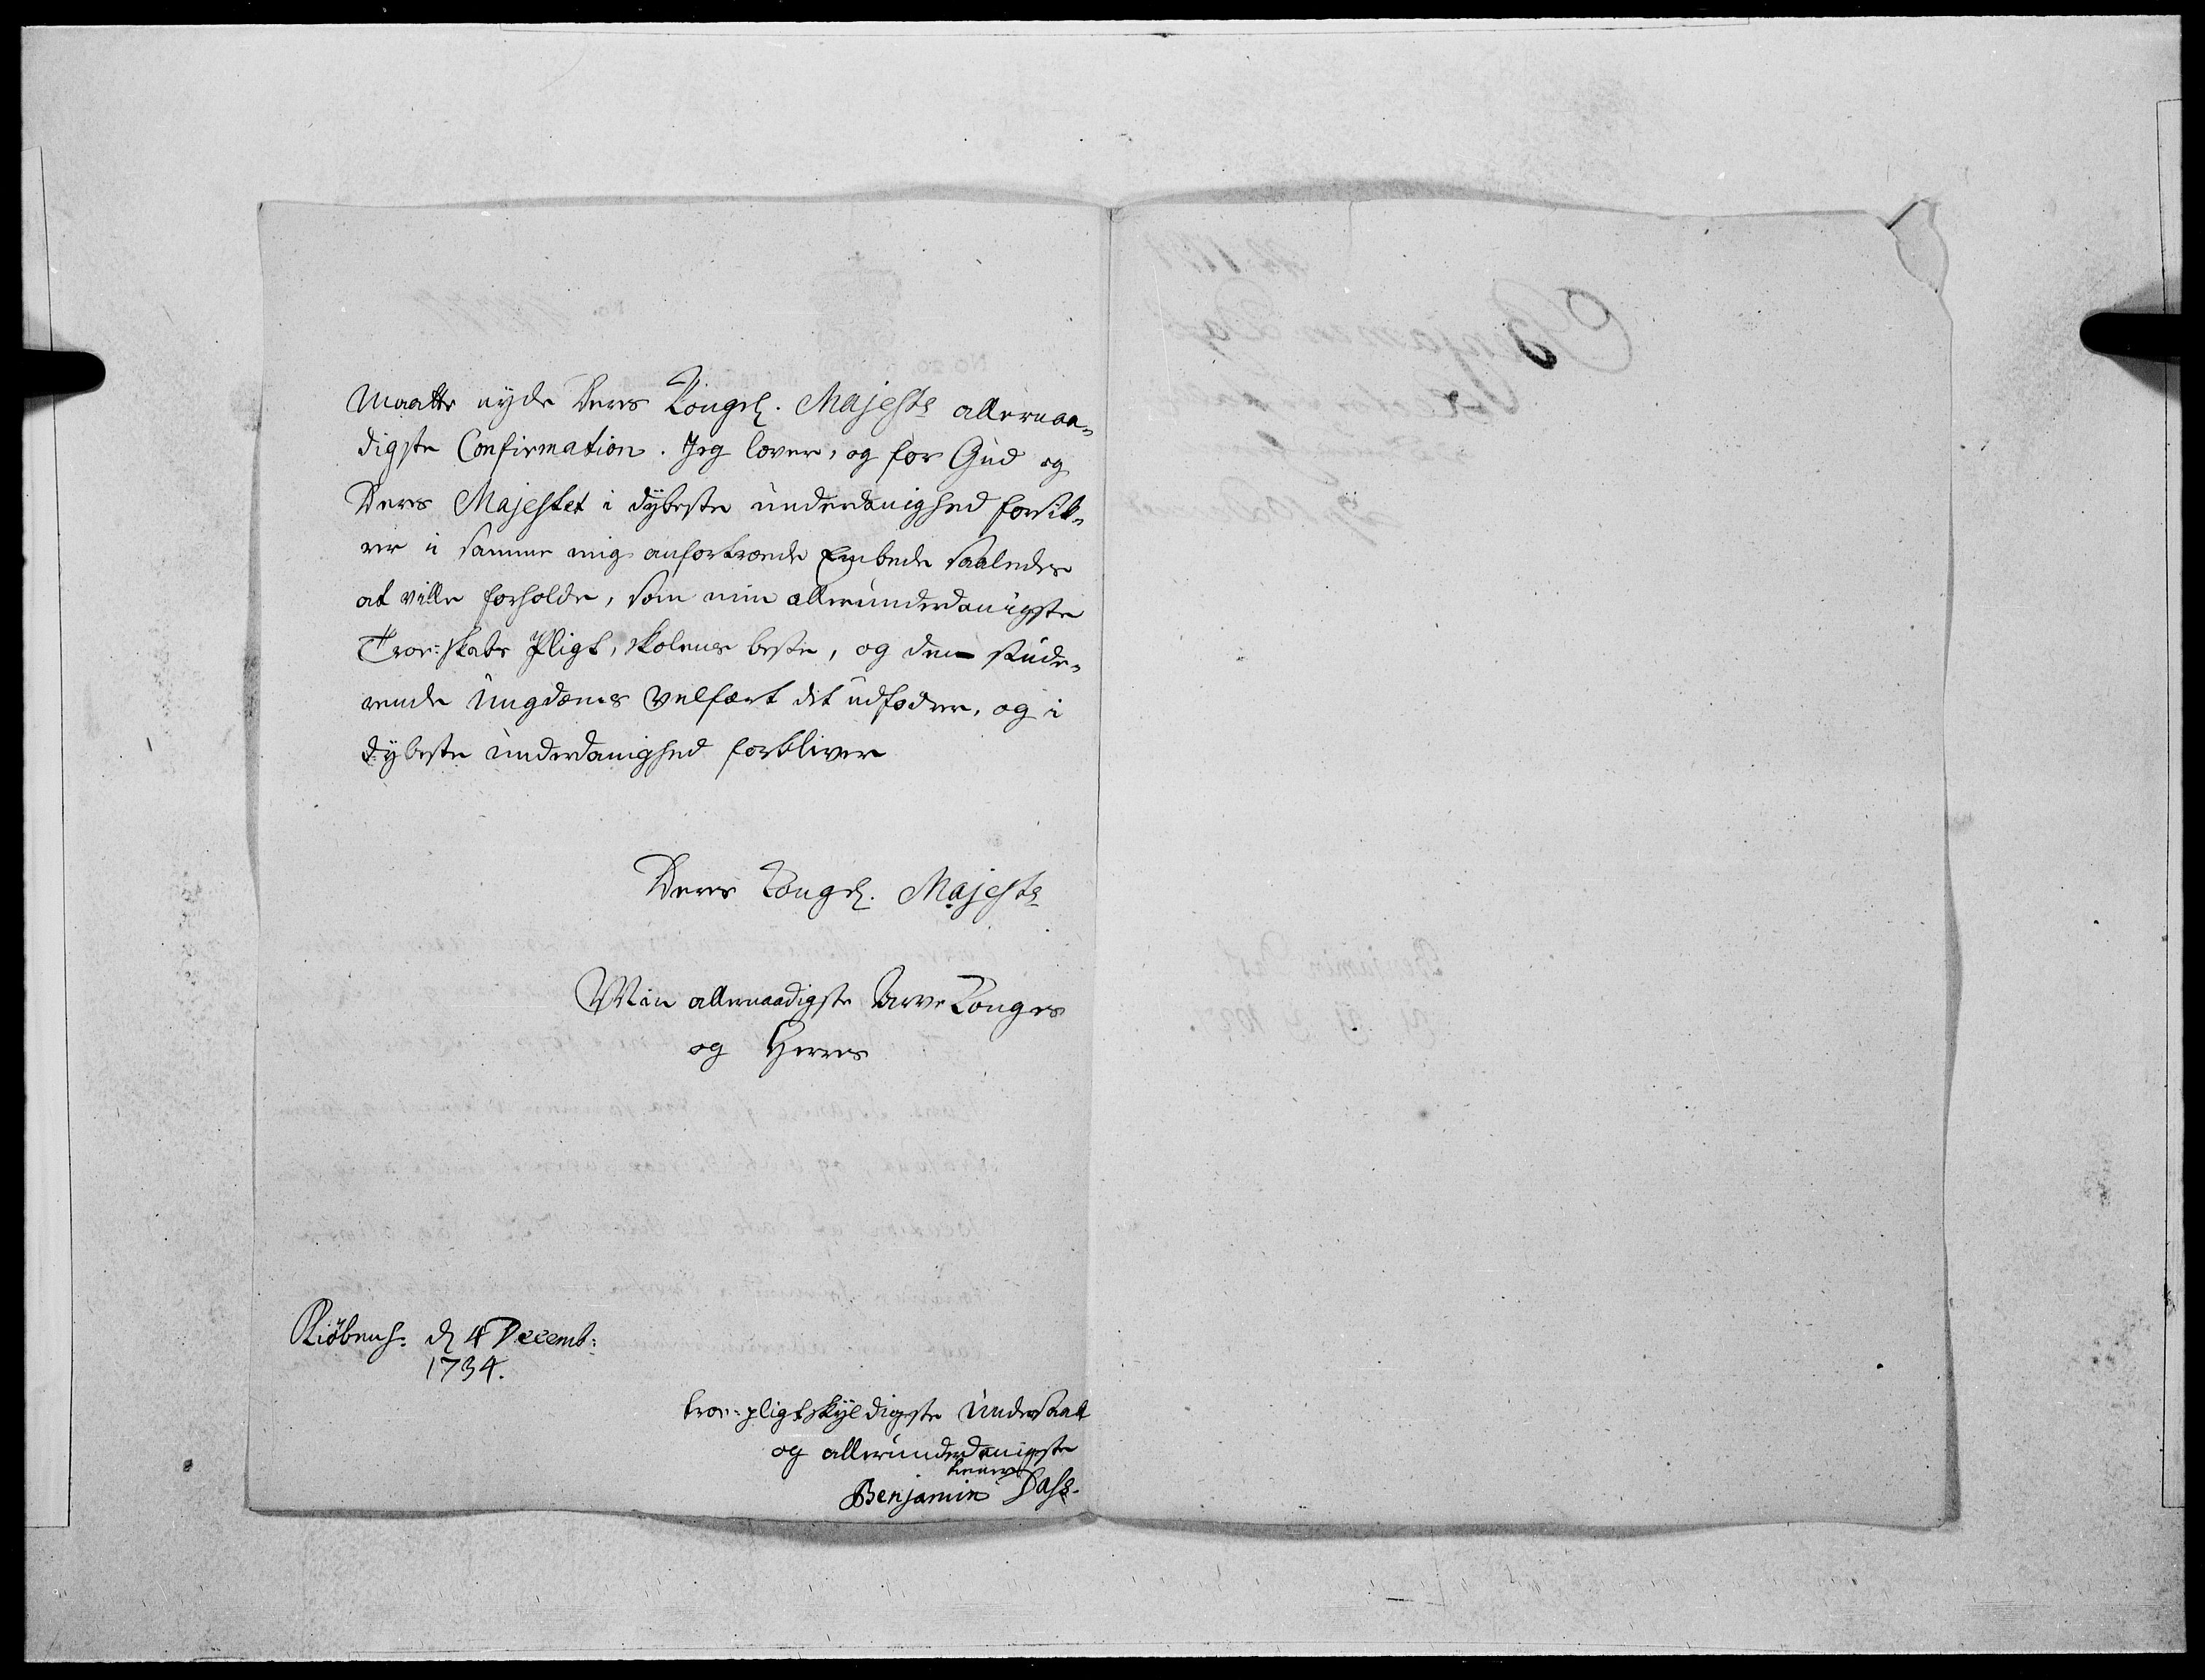 maatte nyde Deres Kongel. Majests allernaa-
digste Confirmation. Jeg lover, og for Gud og
Deres Majestet i dybeste underdanighed forsik-
rer i samme mig anfortroede Embede saaledes
at ville forholde, som min allerunderdanigste
Troe-skabs Pligt, skolens beste, og den stude-
rende Ungdoms velfært det udfodrer, og i
dybeste underdanighed forbliver
Deres Kongel. Majests
Min allernaadigste Arve Konges
og Herres
Kiöbenh. d 4 Decemb:
1734.
troe-pligtskyldigste Undersaat
og allerunderdanigste
tienere
Benjamin Dass.